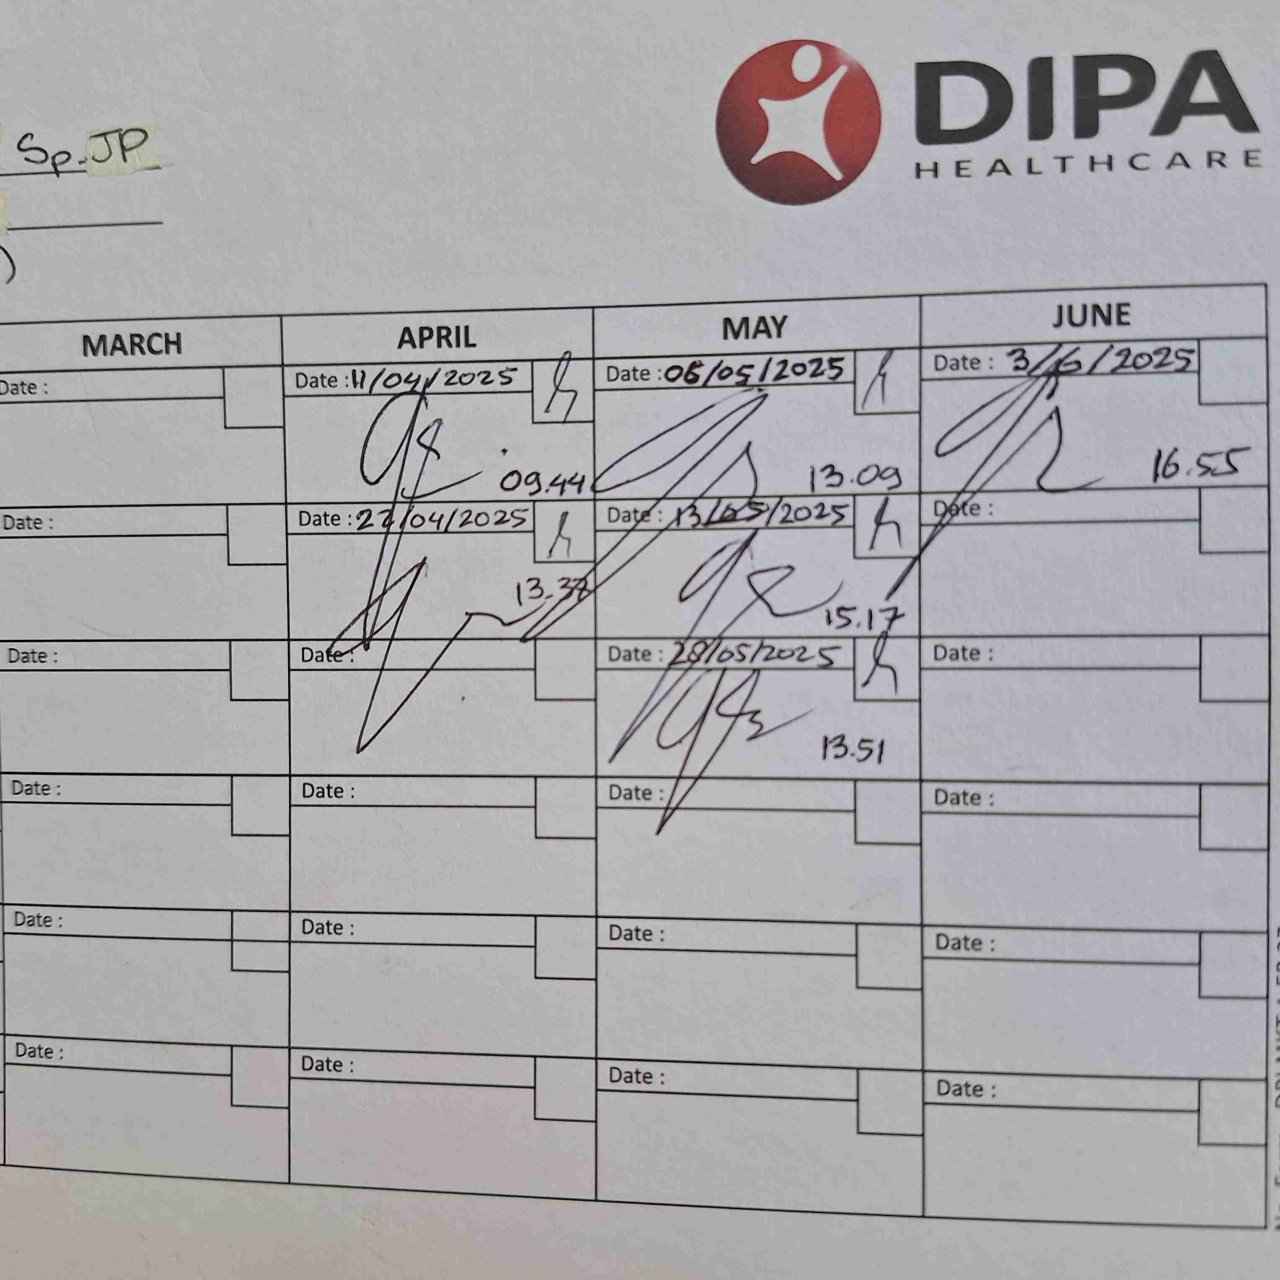 DIPA
HEALTHCARE
Sp.JP
)
MARCH APRIL MAY JUNE
Date : Date : 11/04/2025 Date : 06/05/2025 Date : 3/6/2025
09.44 13.09 16.55
Date : Date : 22/04/2025 Date : 13/05/2025 Date :
13.37 15.17
Date : Date : Date : 28/05/2025 Date :
13.51
Date : Date : Date : Date :
Date : Date : Date : Date :
Date : Date : Date : Date :